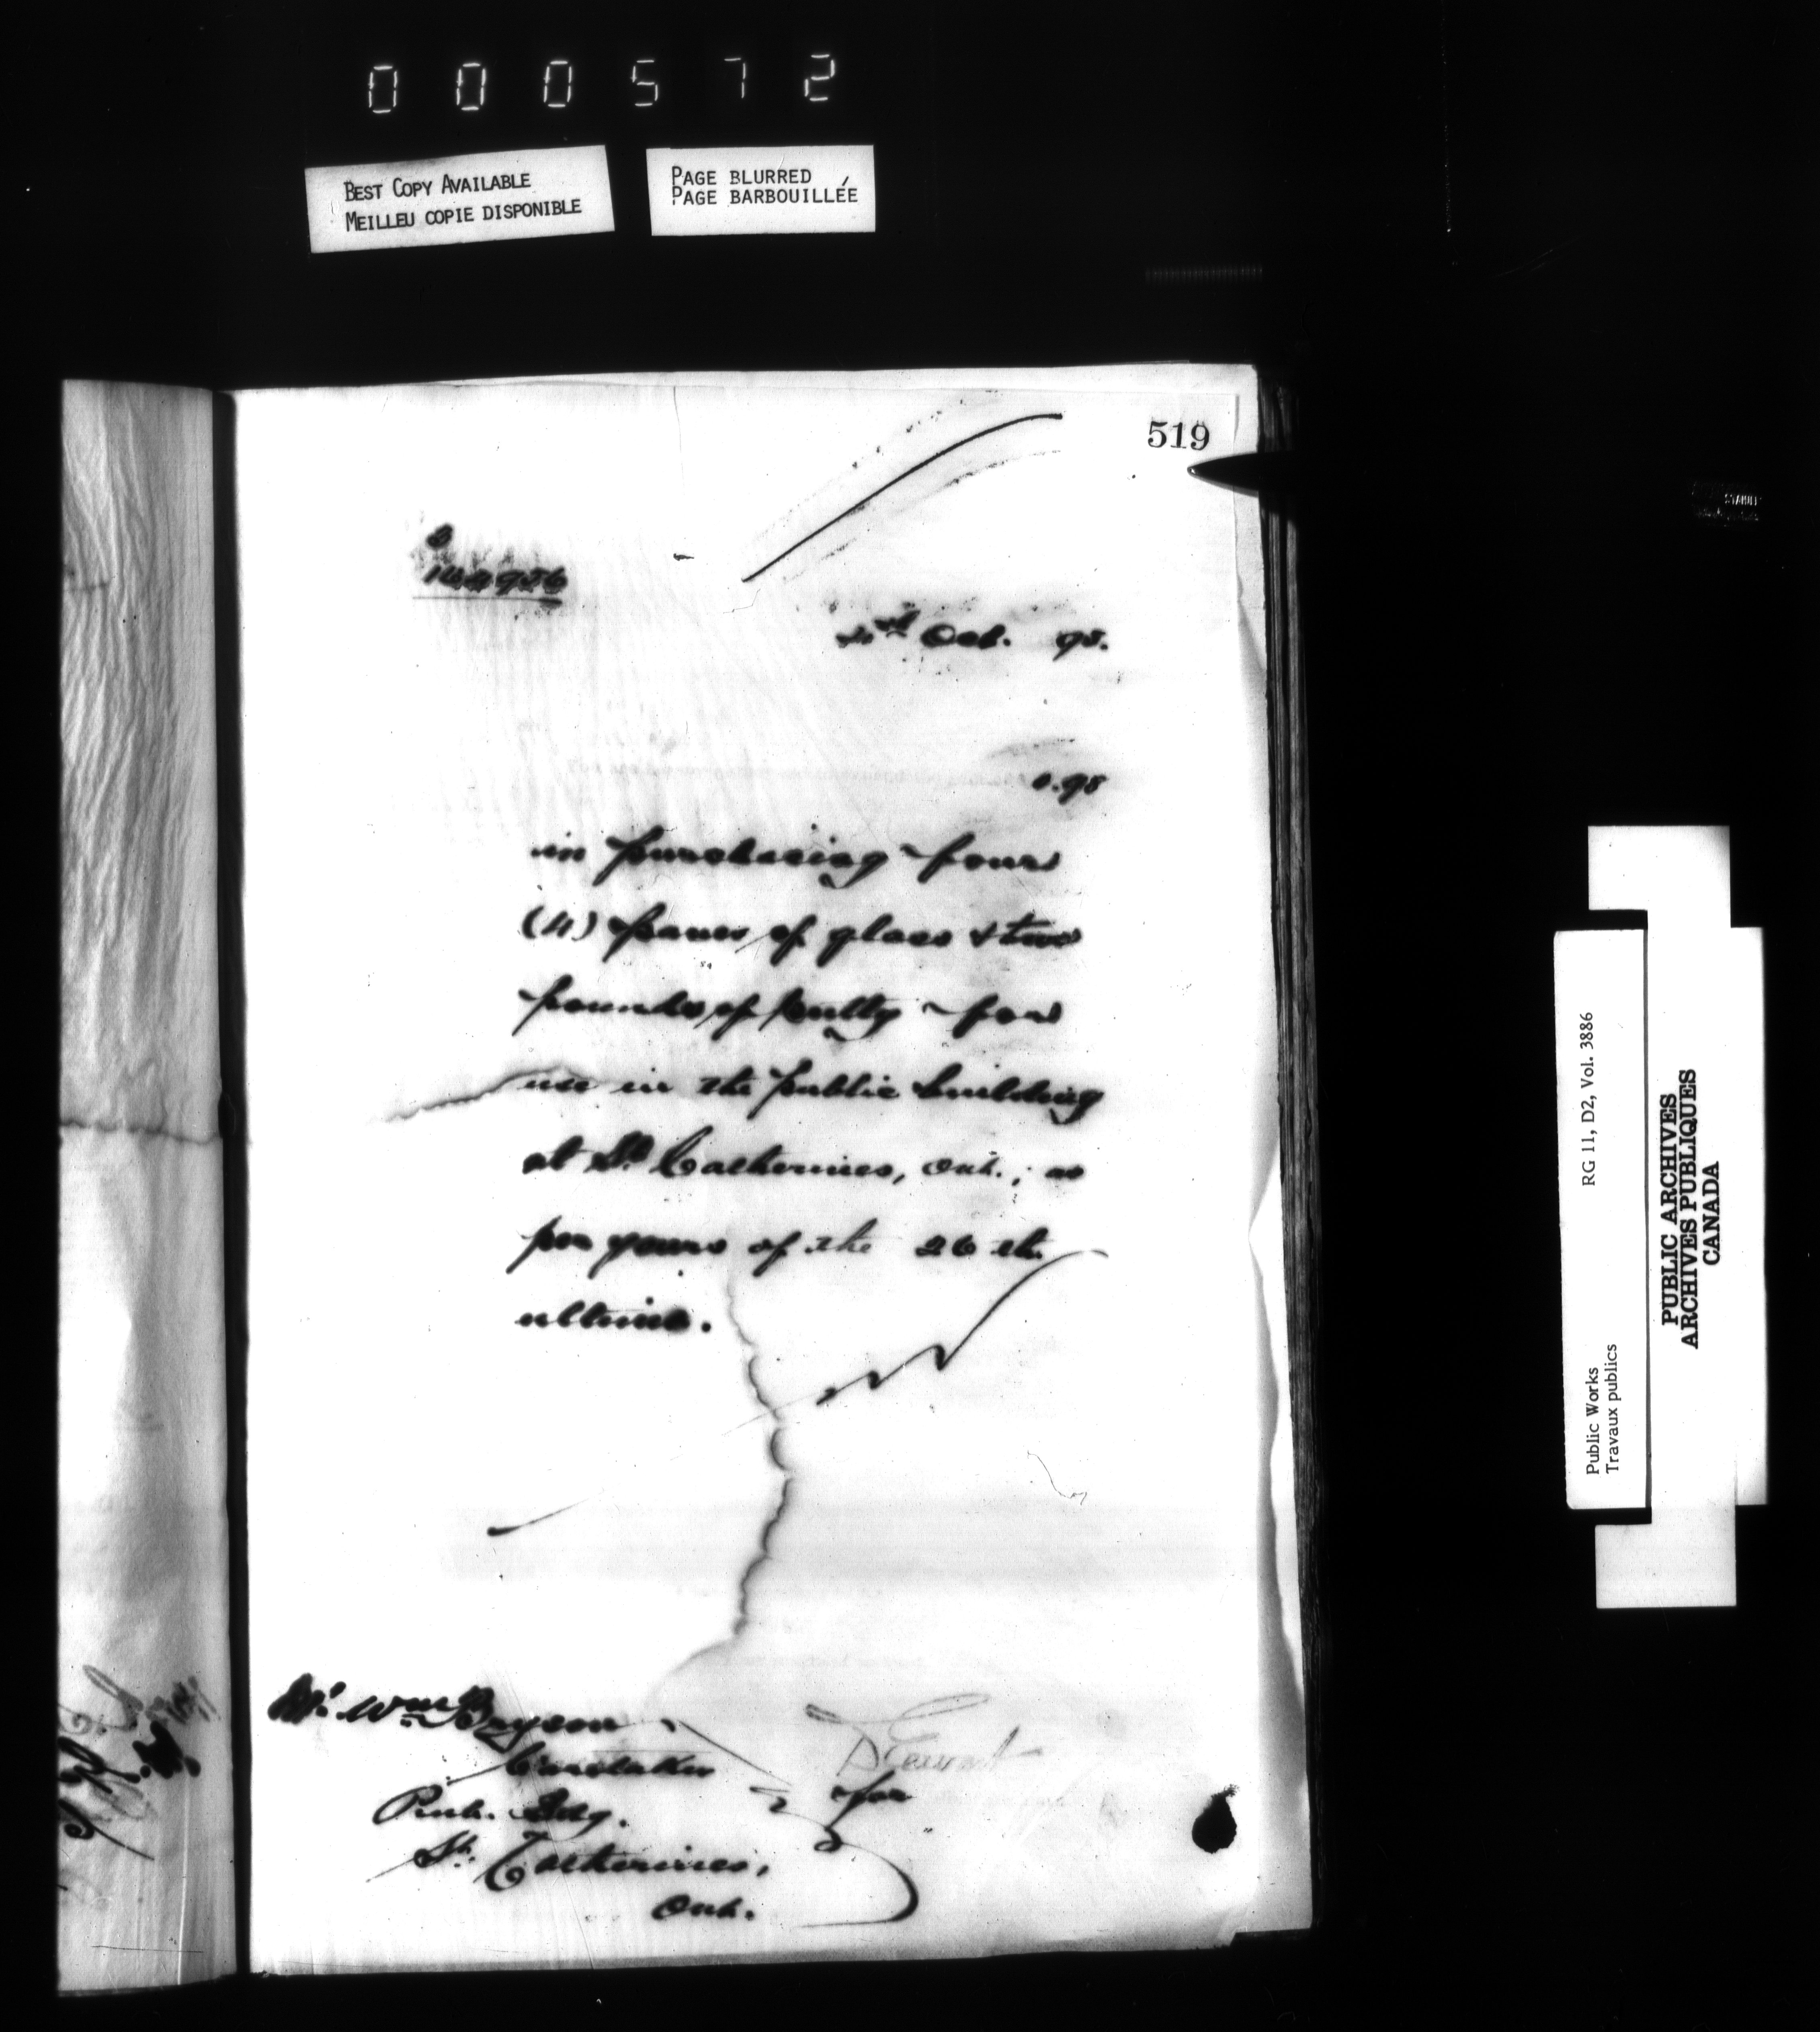 000572
BEST COPY AVAILABLE
MEILLEU COPIE DISPONIBLE
PAGE BLURRED
PAGE BARBOUILLÉE
519
Oct. 95.
0.95
in purchasing four
(4) panes of glass & two
pounds of putty for
use in the public building
at St. Catherines, Ont., as
per yours of the 26th
ultimo.
Mr. Wm Bryson
Caretaker
Pub. Bdg.
St. Catherines,
Ont.
DEwart
for
Public Works
Travaux publics
RG 11, D2, Vol. 3886
PUBLIC ARCHIVES
ARCHIVES PUBLIQUES
CANADA